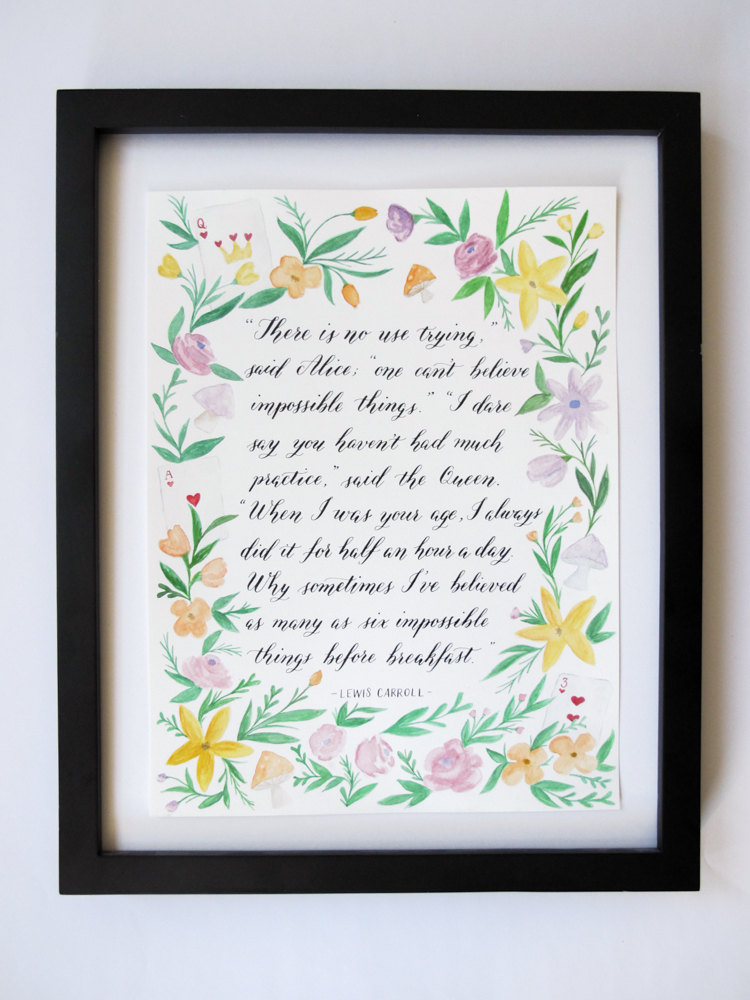 Q
"There is no use trying,"
said Alice; "one can't believe
impossible things." "I dare
say you haven't had much
practice," said the Queen.
"When I was your age, I always
did it for half an hour a day.
Why sometimes I've believed
as many as six impossible
things before breakfast."
- LEWIS CARROLL -
A
3